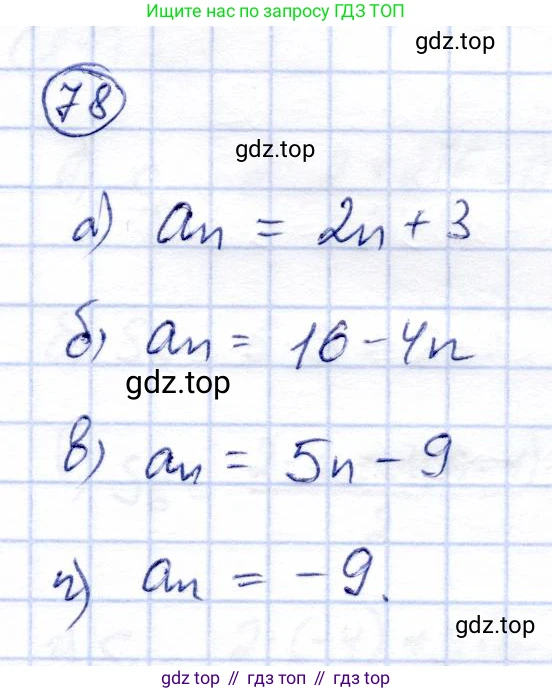 Ищите нас по запросу ГДЗ ТОП
gdz.top
78
gdz.top
а) an = 2n + 3
б) an = 16 - 4n
gdz.top
в) an = 5n - 9
г) an = -9.
gdz.top
gdz.top // гдз топ // гдз.top